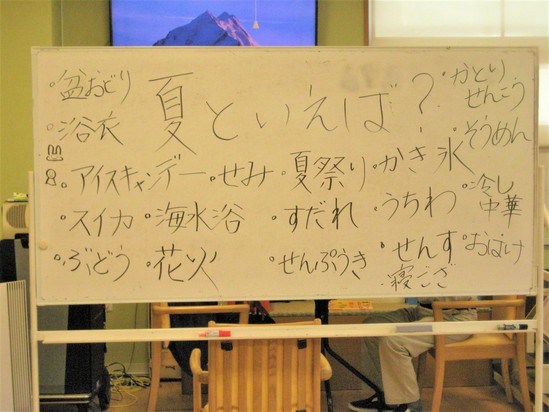 夏といえば?
・盆おどり
・浴衣
・アイスキャンデー
・せみ
・夏祭り
・かき氷
・かとり
せんこう
・そうめん
・スイカ
・海水浴
・すだれ
・うちわ
・冷し
中華
・ぶどう
・花火
・せんぷうき
・せんす
・おばけ
・寝ござ